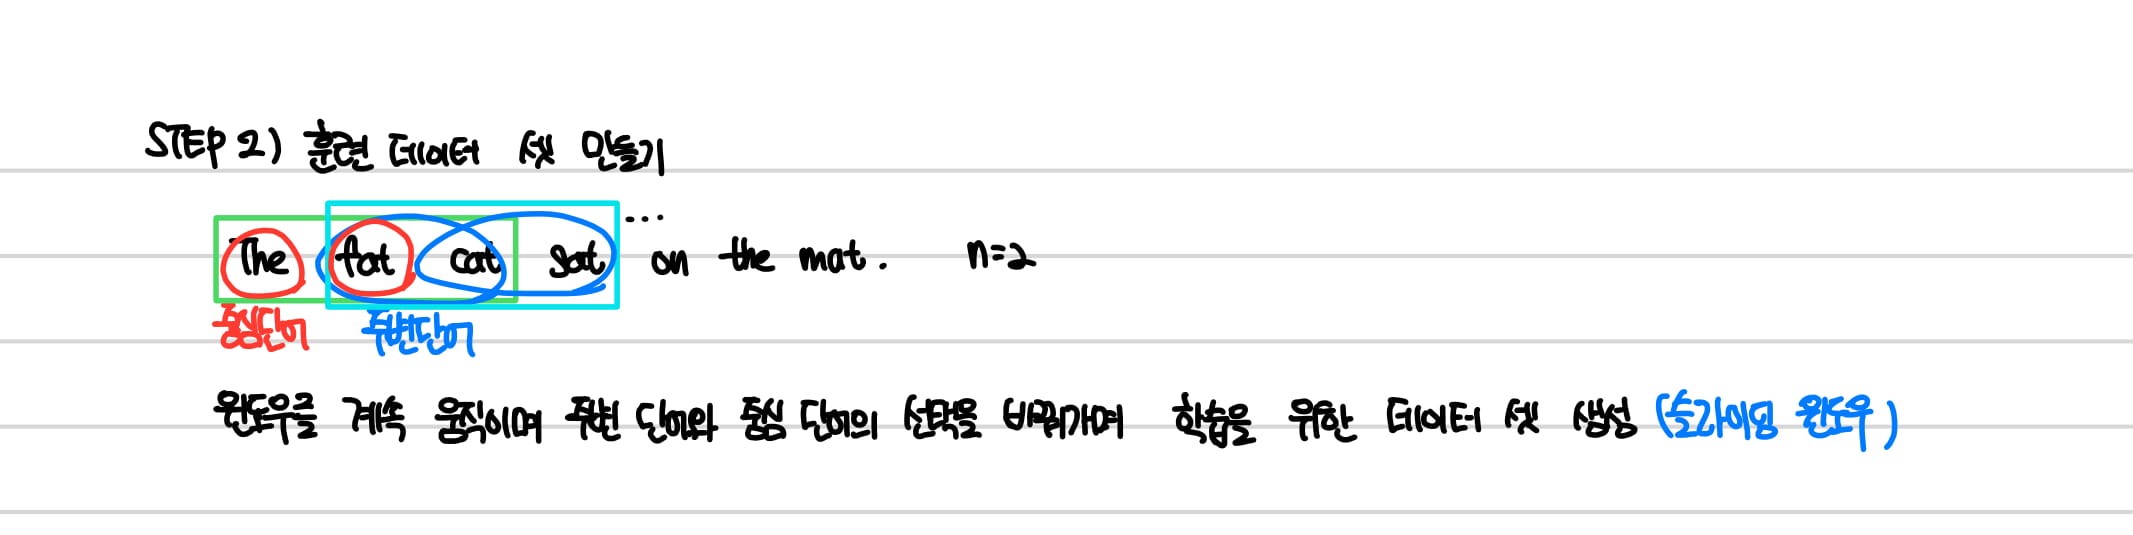 STEP 2) 훈련 데이터 셋 만들기
...
The fat cat sat on the mat. n=2
중심단어 주변단어
윈도우를 계속 움직이며 주변 단어와 중심 단어의 선택을 바꿔가며 학습을 위한 데이터 셋 생성 (슬라이딩 윈도우)